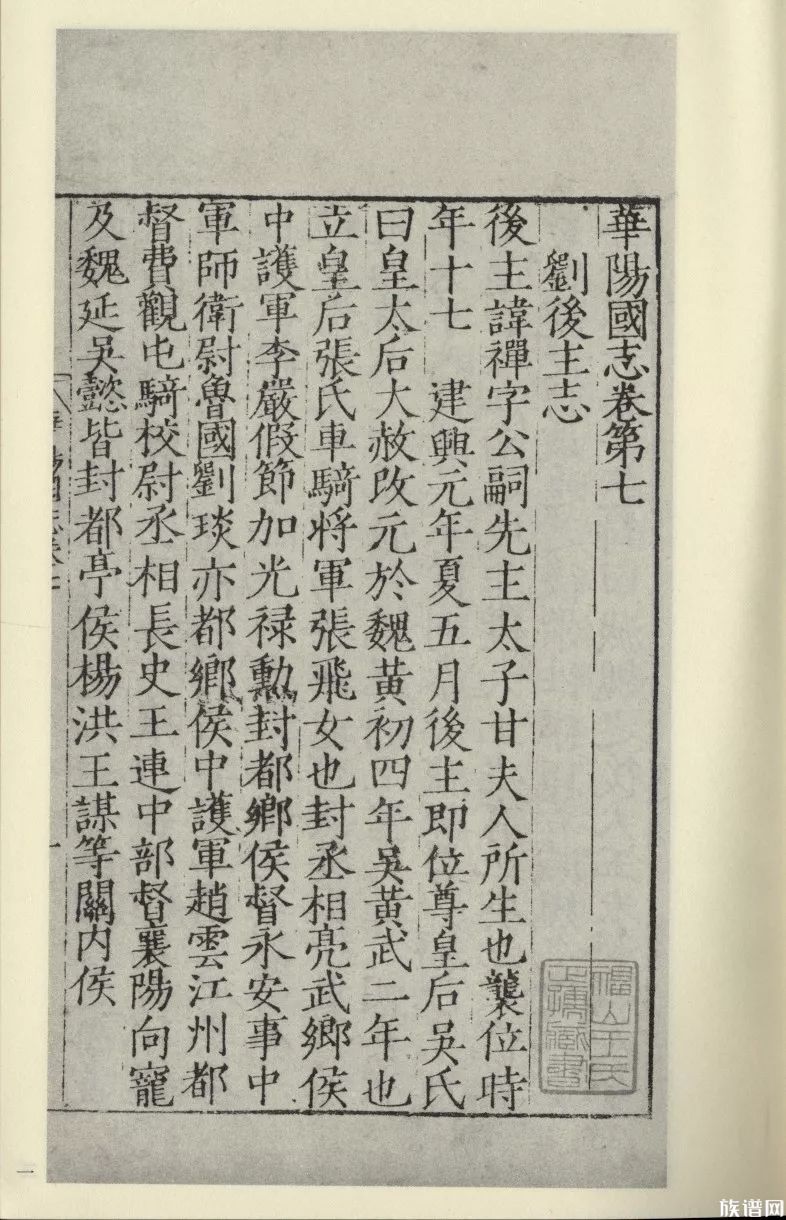 華陽國志卷第七
劉後主志
後主諱禪字公嗣先主太子甘夫人所生也襲位時
年十七 建興元年夏五月後主即位尊皇后吳氏
曰皇太后大赦改元於魏黃初四年吳黃武二年也
立皇后張氏車騎將軍張飛女也封丞相亮武鄉侯
中護軍李嚴假節加光禄勲封都鄉侯督永安事中
軍師衛尉魯國劉琰亦都鄉侯中護軍趙雲江州都
督費觀屯騎校尉丞相長史王連中部督襄陽向寵
及魏延吳懿皆封都亭侯楊洪王謀等關内侯
福山王氏
正孺藏書
一
族谱网